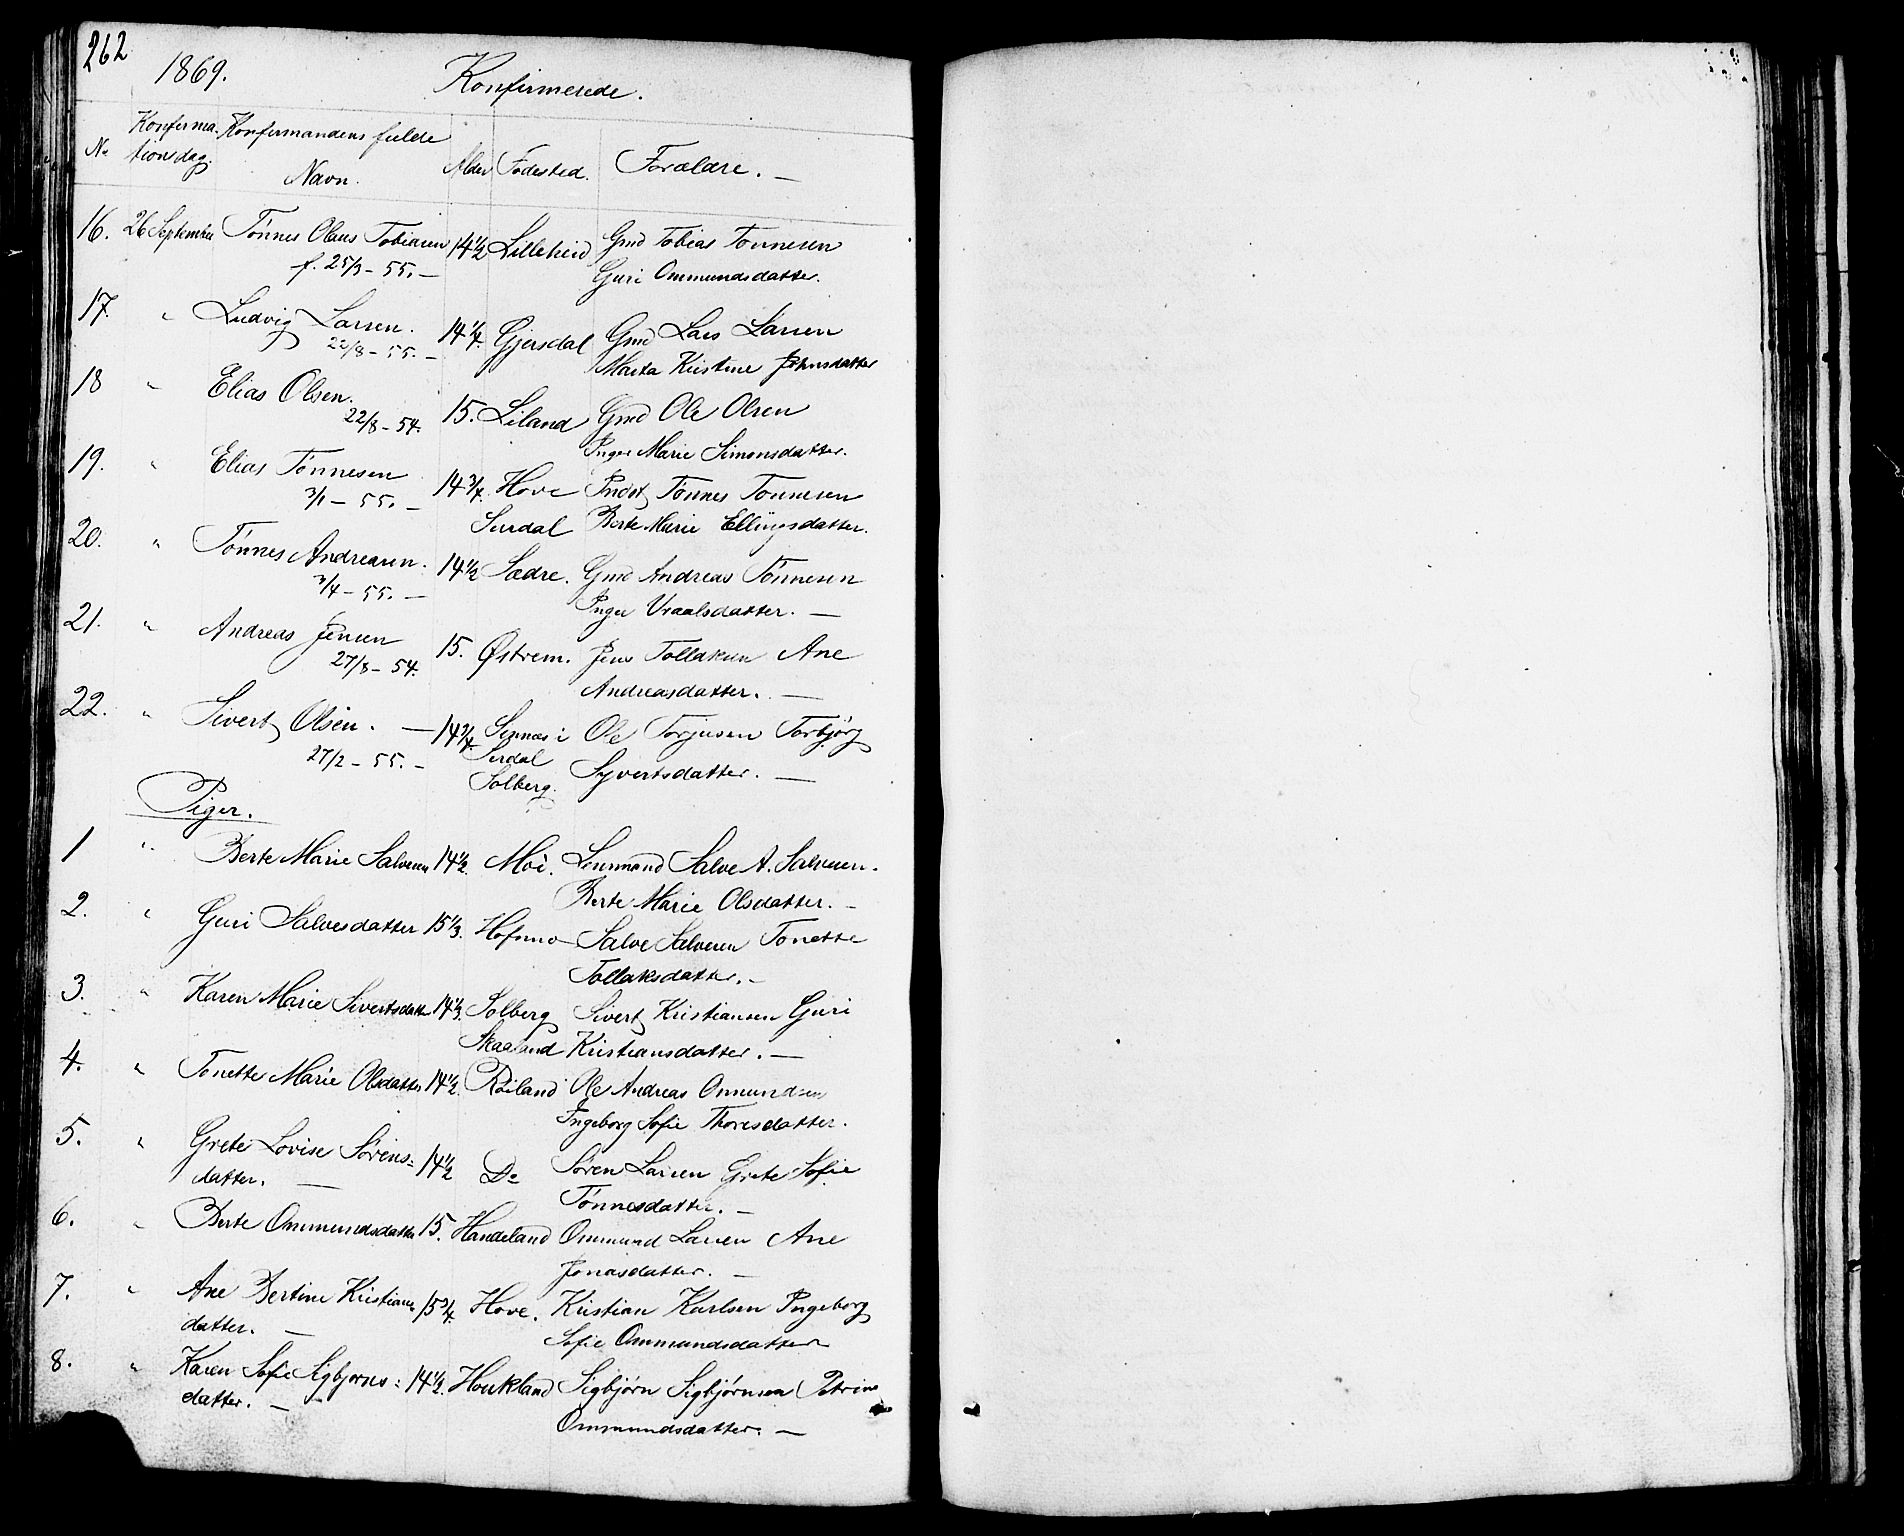 262
1869. Konfirmerede.
No Konfirma- tionsdag. Konfirmandens fulde Navn. Alder Fødested. Forældre. —
16. 26 September Tönnes Olaus Tobiasen 14 1/2 Lilleheid Gmd Tobias Tönnesen
f. 25/3 - 55. — Guri Ommundsdatter.
17. " Ludvig Larsen. 14 1/4. Gjersdal Gmd Lars Larsen
22/8 - 55. — Marta Kristine Johnsdatter
18 " Elias Olsen. 15. Liland Gmd Ole Olsen
22/8 - 54. Inger Marie Simonsdatter.
19. " Elias Tönnesen 14 3/4. Hove Indst Tönnes Tönnesen
3/1 - 55. — Sirdal Berte Marie Ellingsdatter.
20. " Tönnes Andreasen. 14 1/2 Sædre. Gmd Andreas Tönnesen
3/4 - 55. — Inger Vraalsdatter. —
21. " Andreas Jensen 15. Østrem. Jens Tollaksen Ane
27/8 - 54. Andreasdatter. —
22. " Sivert Olsen. — 14 3/4. Sinnes i Ole Torjusen Torbjörg
27/2 - 55. — Sirdal Syvertsdatter. —
Solberg.
Piger.
1 " Berte Marie Salvesen 14 1/2. Moi. Lensmand Salve A. Salvesen.
Berte Marie Olsdatter. —
2. " Guri Salvesdatter 15 1/3. Hofsmo Salve Salvesen Tonette
Tollaksdatter. —
3. " Karen Marie Sivertsdatter 14 1/3. Solberg Sivert Kristiansen Guri
Skaaland Kristiansdatter. —
4. " Tonette Marie Olsdatter 14 1/2. Röiland Ole Andreas Ommundsen
Ingeborg Sofie Thoresdatter.
5. " Grete Lovise Sörens= 14 1/2 Do Sören Larsen Grete Sofie
datter. — Tönnesdatter. —
6. " Berte Ommundsdatter 15. Handeland Ommund Larsen Ane
Jonasdatter. —
7. " Ane Bertine Kristians 15 3/4. Hove. Kristian Karlsen Ingeborg
datter. — Sofie Ommundsdatter
8. " Karen Sofie Sigbjörns= 14 1/2. Houkland Sigbjörn Sigbjörnsen Petrine
datter. — Ommundsdatter. —